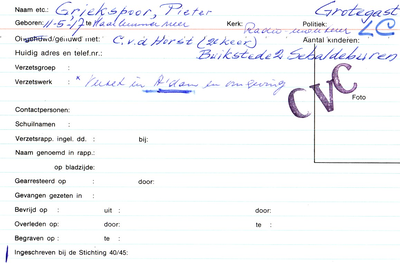 Naam etc.: Grijekspoor, Pieter Grotegast
Geboren: 11-5-'17 te Haarlemmermeer Kerk: Politiek: LC
Radio-monteur
Ongehuwd/gehuwd met: C.v.d Horst (2e keer) Aantal kinderen:
Huidig adres en telef.nr.: Buikstede 2 Sebaldeburen
Verzetsgroep :
Verzetswerk : x Verzet in A'dam en omgeving
CVC
Contactpersonen: Foto
Schuilnaam :
Verzetsrapp. ingel. dd. : bij:
Naam genoemd in rapp.:
op bladzijde:
Gearresteerd op : door:
Gevangen gezeten in :
Bevrijd op : uit : door:
Overleden op: door: te :
Begraven op : te :
Ingeschreven bij de Stichting 40/45: